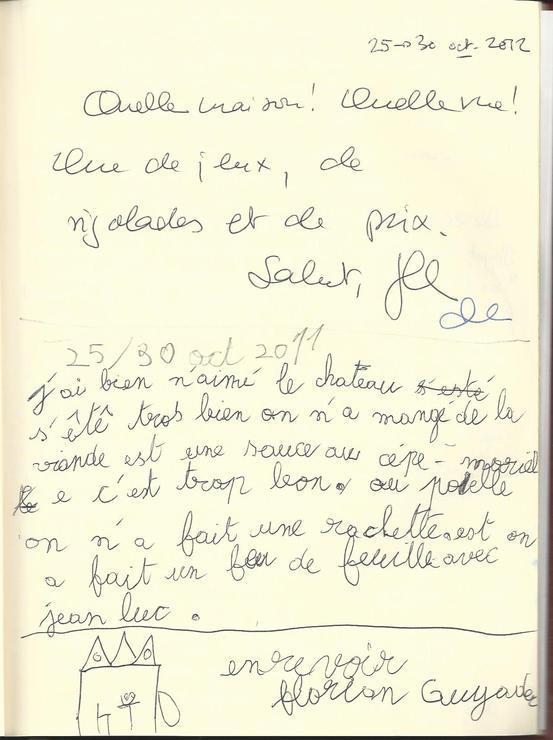 25→30 oct. 2012
Quelle maison! Quelle vue!
Que de jeux, de
rigolades et de prix.
Salut,
25/30 oct 2011
j'ai bien n'aimé le chateau s'esté
s'été trop bien on n'a mangé de la
viande est une sauce au cépe-
e c'est trop bon. ou poielle
on n'a fait une rachette. est on
a fait un feu de feuille avec
jean luc.
enrevoir
florian